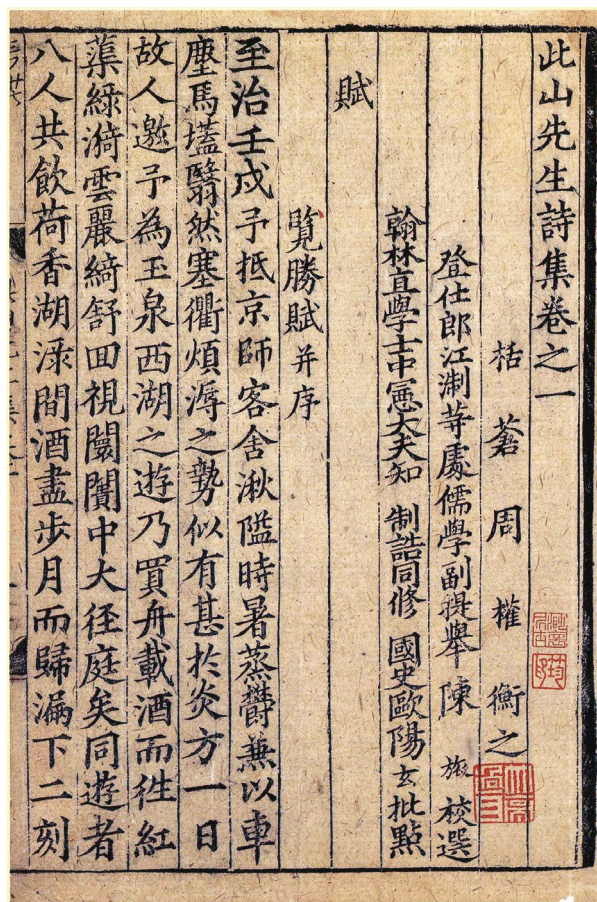 此山先生詩集卷之一
栝蒼周權衡之
登仕郎江淛等處儒學副提舉陳旅校選
翰林直學士中憲大夫知 制誥同修 國史歐陽玄批點
賦
覽勝賦并序
至治壬戌予抵京師客舍湫隘時暑蒸欝兼以車
塵馬壒翳然塞衢煩溽之勢似有甚於炎方一日
故人邀予為玉泉西湖之遊乃買舟載酒而徃紅
蕖綠漪雲麗綺舒回視闤闠中大徑庭矣同遊者
八人共飲荷香湖渌間酒盡步月而歸漏下二刻